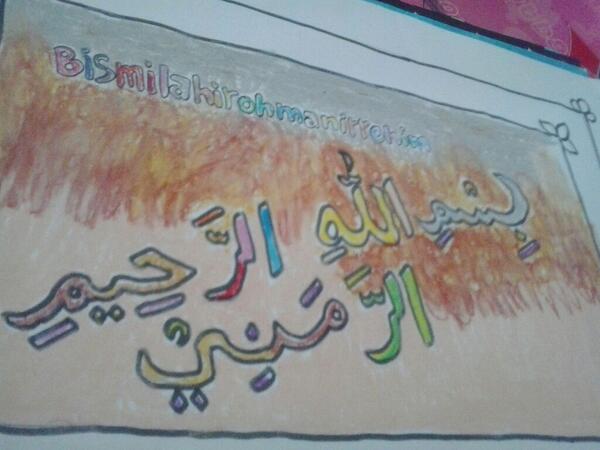 Bismilahirohmanirrohim
بِسْمِ اللهِ الرَّحِيمِ
الرَّمَنِيْ